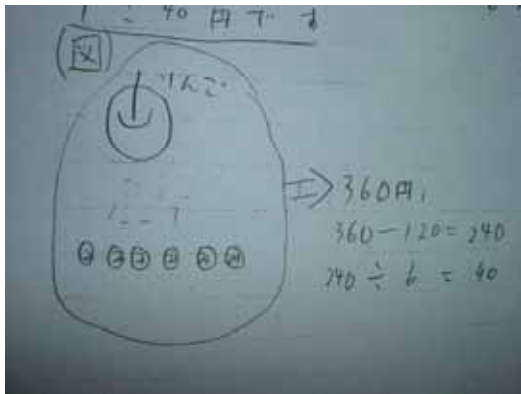 1こ40円です
(図)
りんご
360円
360-120=240
240÷6=40